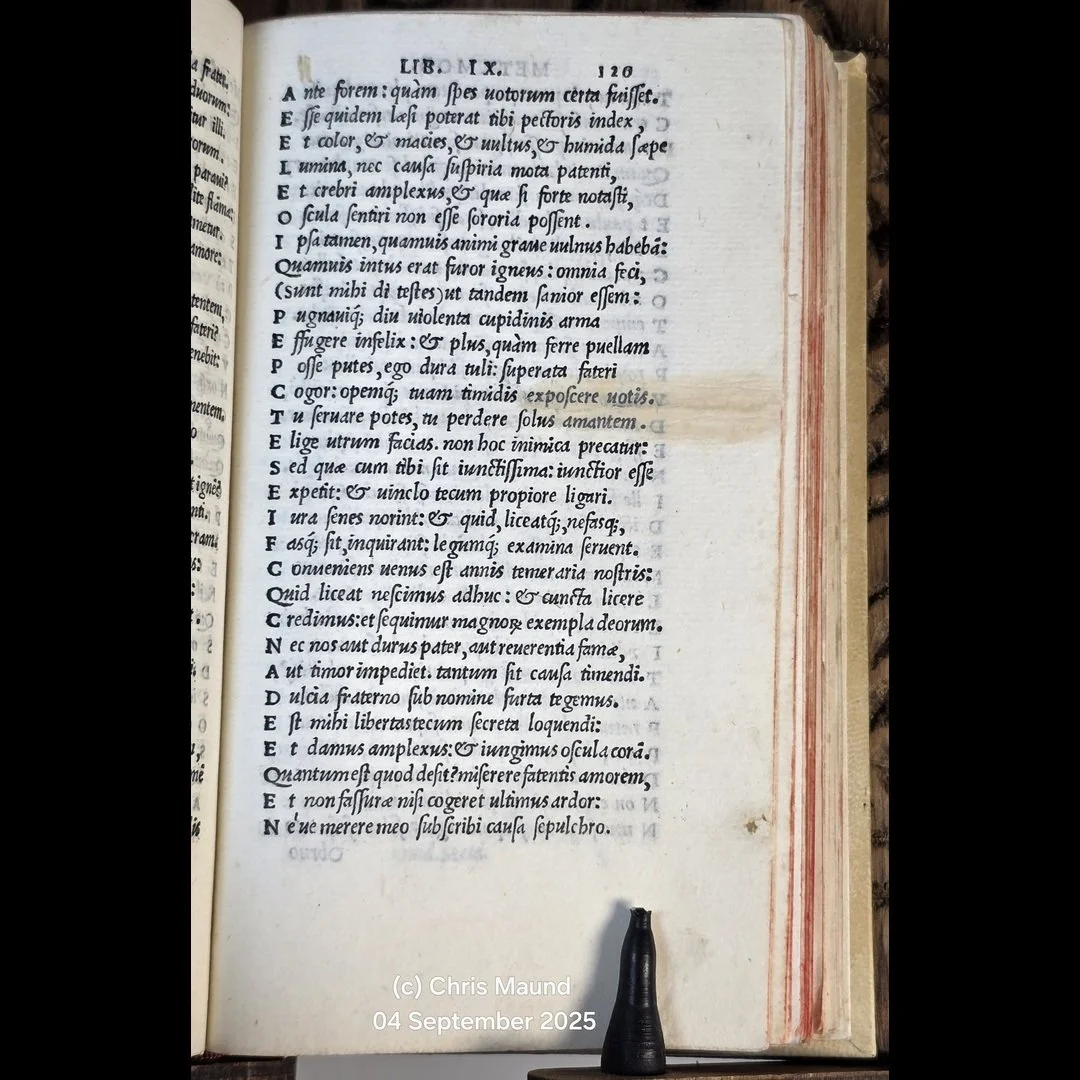 LIB. IX. 120
Ante forem: quàm spes uotorum certa fuisset.
Esse quidem læsi poterat tibi pectoris index,
Et color, & macies, & uultus, & humida sæpe
Lumina, nec causa suspiria mota patenti,
Et crebri amplexus, & quæ si forte notasti,
Oscula sentiri non esse sororia possent.
Ipsa tamen, quamuis animi graue uulnus habebā:
Quamuis intus erat furor igneus: omnia feci,
(Sunt mihi di testes) ut tandem sanior essem:
Pugnauiq; diu uiolenta cupidinis arma
Effugere infelix: & plus, quàm ferre puellam
Posse putes, ego dura tuli: superata fateri
Cogor: opemq; tuam timidis exposcere uotis.
Tu seruare potes, tu perdere solus amantem.
Elige utrum facias. non hoc inimica precatur:
Sed quæ cum tibi sit iunctissima: iunctior esse
Expetit: & uinclo tecum propiore ligari.
Iura senes norint: & quid, liceatq;, nefasq;,
Fasq; sit, inquirant: legumq; examina seruent.
Conueniens uenus est annis temeraria nostris:
Quid liceat nescimus adhuc: & cuncta licere
Credimus: et sequimur magnoꝝ exempla deorum.
Nec nos aut durus pater, aut reuerentia famæ,
Aut timor impediet. tantum sit causa timendi.
Dulcia fraterno sub nomine furta tegemus.
Est mihi libertas tecum secreta loquendi:
Et damus amplexus: & iungimus oscula corā.
Quantum est quod desit? miserere fatentis amorem,
Et non fassuræ nisi cogeret ultimus ardor:
Néue merere meo subscribi causa sepulchro.
(c) Chris Maund
04 September 2025